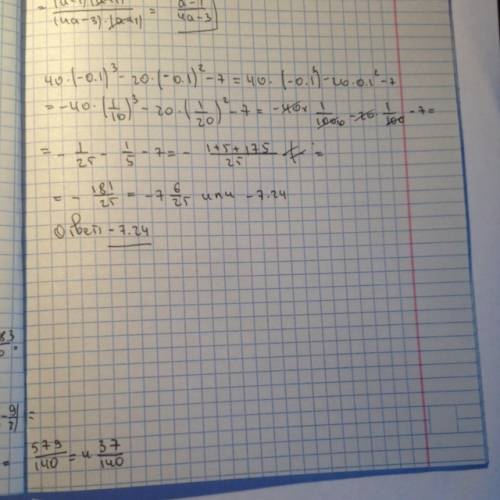 = (a-1)(a+1) / (4a-3)·(a+1) = a-1 / 4a-3
40·(-0.1)³-20·(-0.1)²-7=40·(-0.1³)-20·0.1²-7
=-40·(1/10)³-20·(1/20)²-7=-40·1/1000-20·1/100-7=
=-1/25-1/5-7=-1+5+175/25=
=-181/25=-7 6/25 или -7.24
Ответ: -7.24
579/140=4 37/140